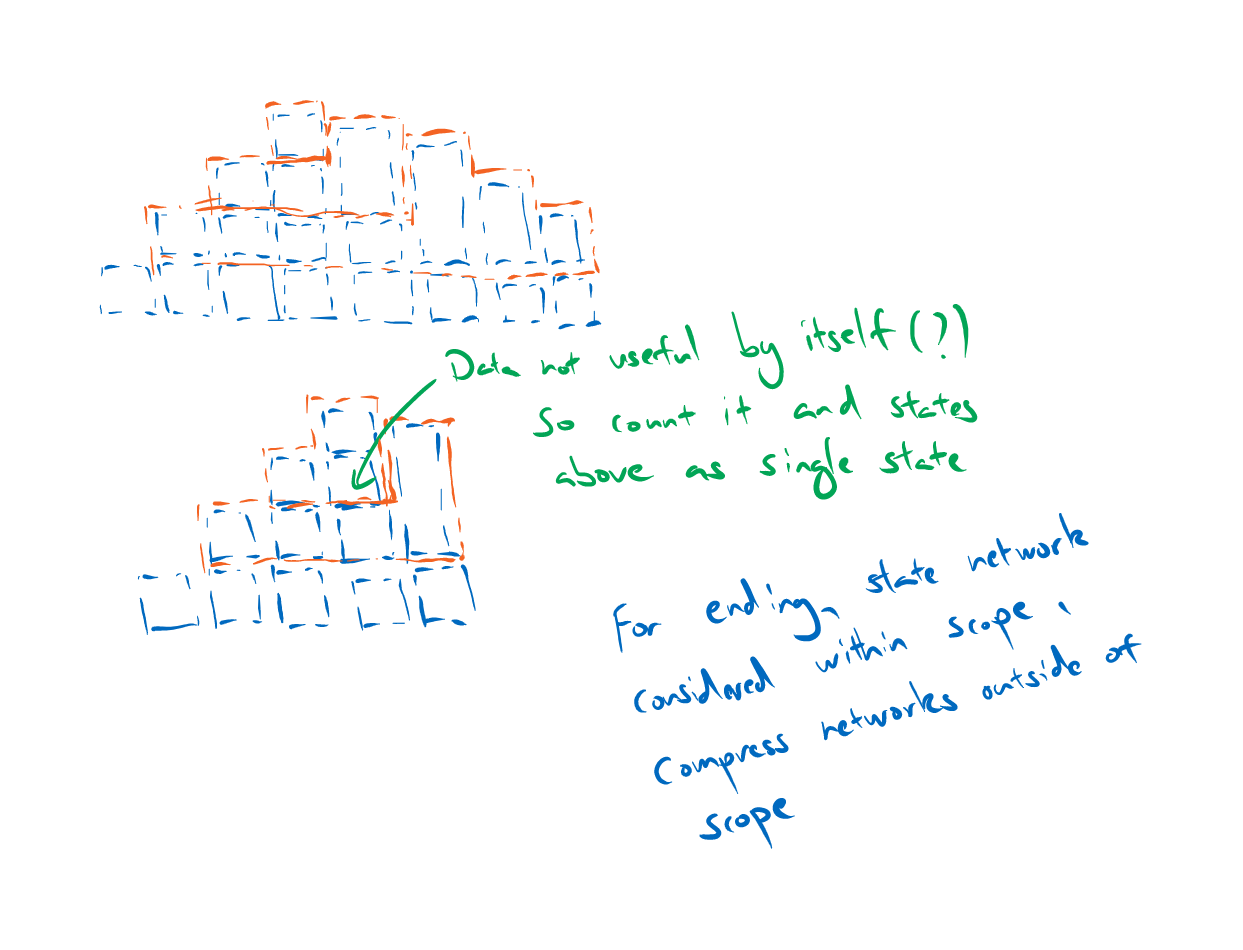 Data not useful by itself (?)
So count it and states
above as single state
For ending, state network
considered within scope,
Compress networks outside of
scope